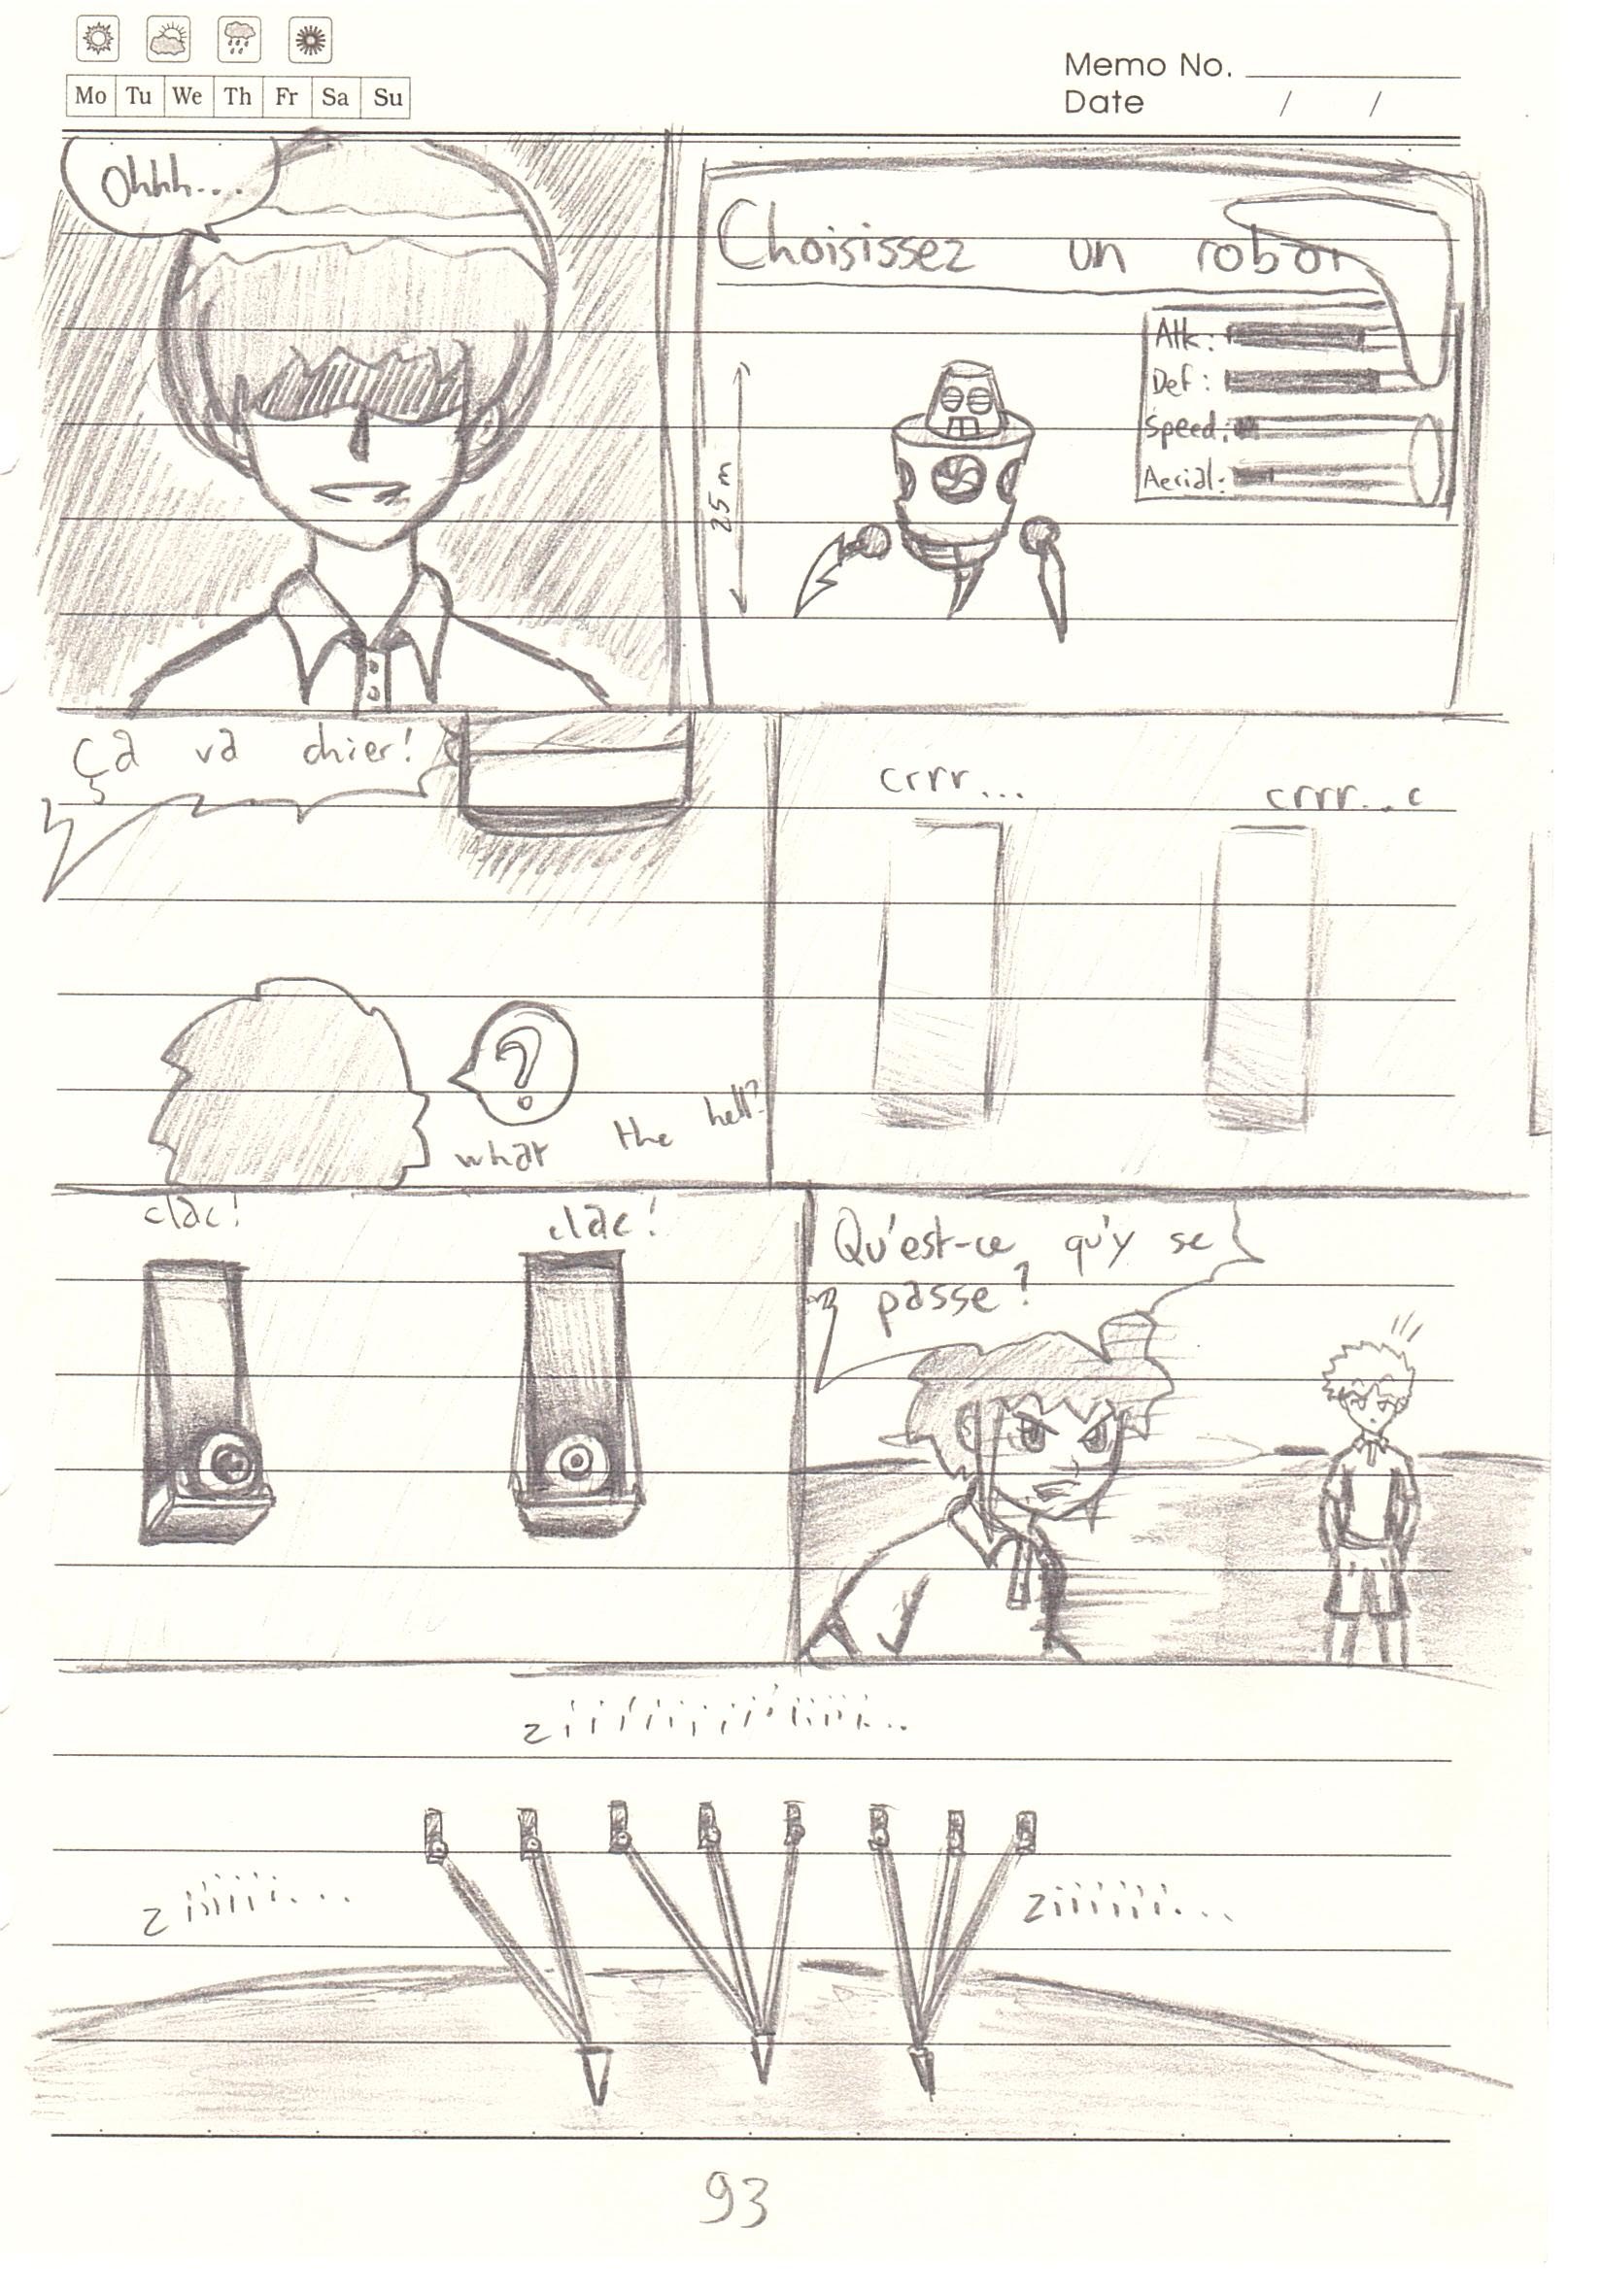 Mo Tu We Th Fr Sa Su
Memo No.
Date / /
Ohhh...
Choisissez un robot
Atk:
Def:
Speed:
Aerial:
25 m
Ça va chier!
?
what the hell?
crrr...
crrr...c
clac!
clac!
Qu'est-ce qu'y se
passe?
ziiiiiiiiiiiiiii...
ziiiiii...
ziiiiii...
93